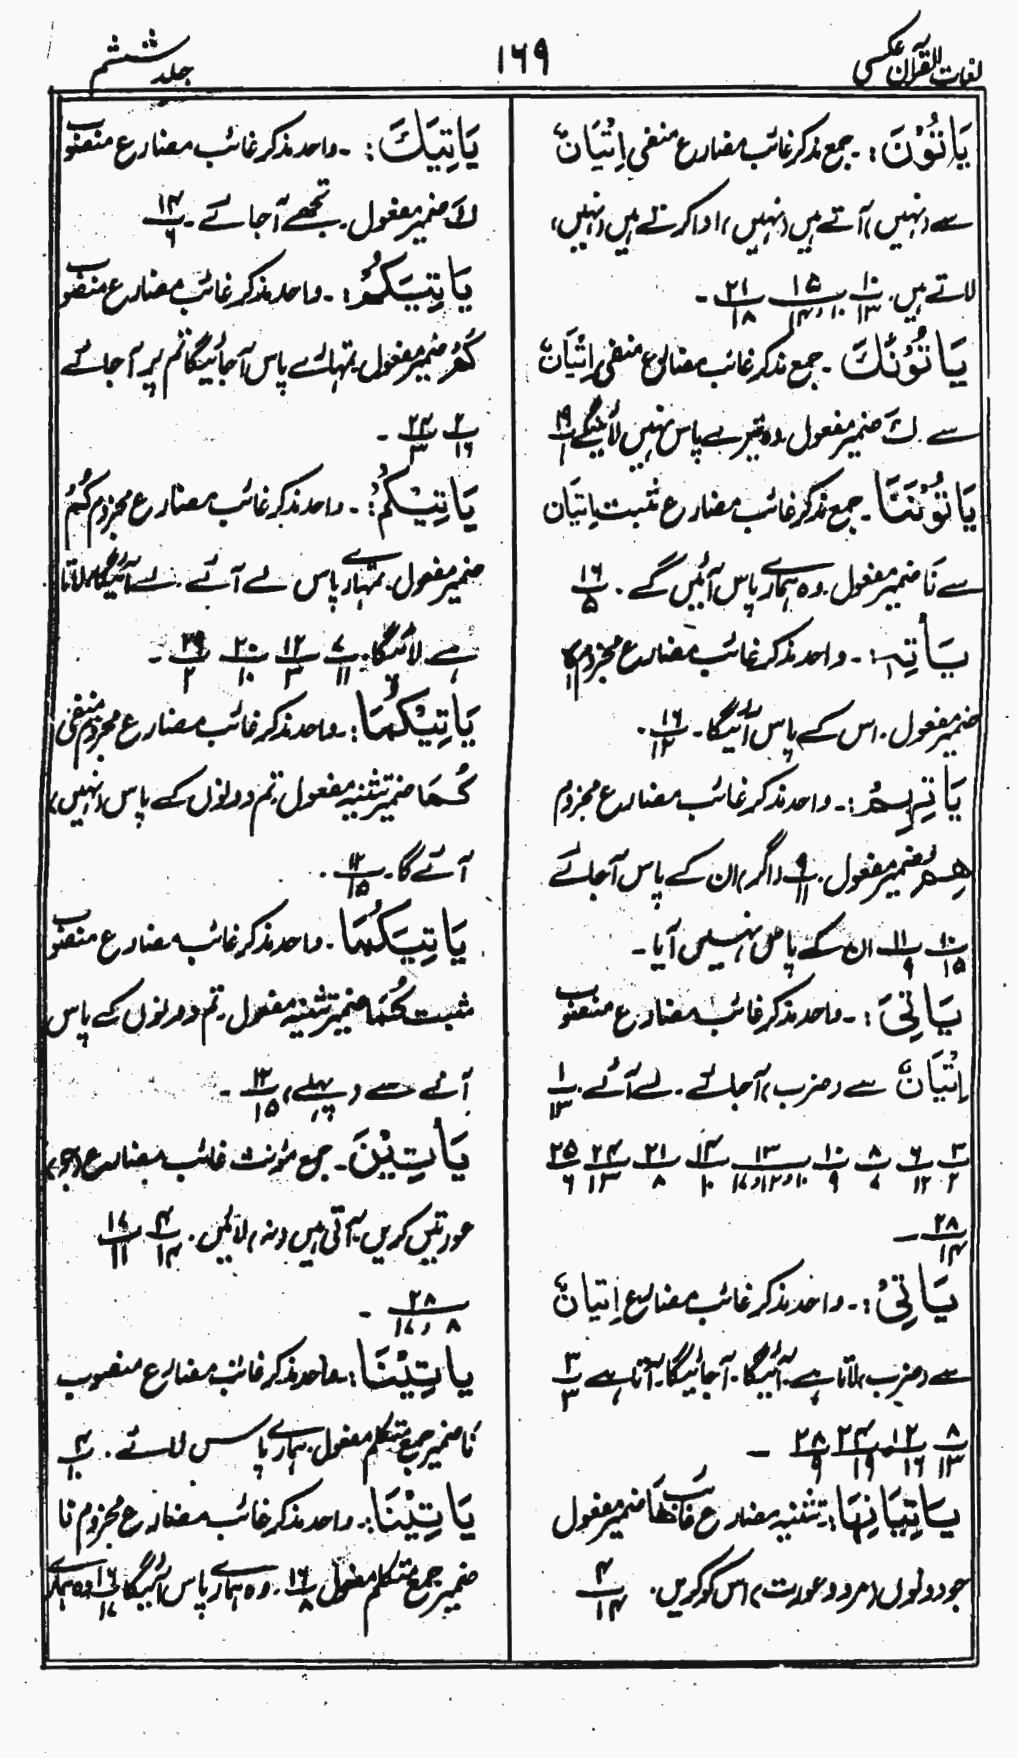 لغات القرآن عکسی
۱۶۹
جلد ششم
يَاتُوْنَ:۔ جمع مذکر غائب مضارع منفی اِتْيَانٌ
سے (نہیں) آتے ہیں (نہیں) ادا کرتے ہیں (نہیں)
لاتے ہیں. ۱۰/۱۳ ۱۵/۱۰،۱۴ ۲۱/۱۸ -
يَاتُوْنَكَ - جمع مذکر غائب مضارع منفی اِتْيَانٌ
سے . كَ ضمیر مفعول. وہ تیرے پاس نہیں لائینگے ۱۹/۱
يَاتُوْنَنَا - جمع مذکر غائب مضارع مثبت اِتیَان
سے نَا ضمیر مفعول. وہ ہمارے پاس آئیں گے . ۱۶/۵
يَاتِہٖ:۔ واحد مذکر غائب مضارع مجزوم ہٗ
ضمیر مفعول. اس کے پاس آئیگا - ۱۶/۱۲.
يَاتِہِمْ:۔ واحد مذکر غائب مضارع مجزوم
هِمْ ضمیر مفعول. ۹/۱۱ (اگر) ان کے پاس آجائے
۱۰/۱۵ ۱۱/۹ ان کے پاس نہیں آیا -
يَاتِیَ:۔ واحد مذکر غائب مضارع منصوب
اِتْيَانٌ سے (ضرب) آجائے . لے آئے. ۱/۱۳
۳/۲ ۶/۱۲ ۸/۷ ۱۰/۹ ۱۳/۱۰،۱۲،۱۷ ۱۴/۱۰ ۲۱/۸ ۲۴/۱۳ ۲۵/۶
۲۸/۱۴ -
يَاتِیْ:۔ واحد مذکر غائب مضارع اِتیَانٌ
سے (ضرب) لاتا ہے. آئیگا. آجائیگا. آتا ہے ۳/۳
۸/۱۳ ۱۲/۱۶ ۲۴/۱۹ ۲۸/۹ -
يَاتِيَانِهَا: تثنیہ مضارع غائب هَا ضمیر مفعول
جو دونوں (مرد و عورت) اس کو کریں. ۴/۱۴
يَاتِيَكَ:۔ واحد مذکر غائب مضارع منصوب
كَ ضمیر مفعول. تجھے آجائے - ۱۴/۶
يَاتِيَكُمْ:۔ واحد مذکر غائب مضارع منصوب
كُمْ ضمیر مفعول. تمہارے پاس آجائیگا تم پر آجائے
۲/۱۶ ۲۴/۳ -
يَاتِيْكُمْ:۔ واحد مذکر غائب مضارع مجزوم كُمْ
ضمیر مفعول. تمہارے پاس لے آئے . لے آئیگا. لاتا
ہے. لائیگا. ۷/۱۱ ۱۲/۳ ۲۰/۱۰ ۲۹/۲ -
يَاتِيْكُمَا:۔ واحد مذکر غائب مضارع مجزوم منفی
كُمَا ضمیر تثنیہ مفعول. تم دونوں کے پاس (نہیں)
آئے گا. ۱۲/۱۵ .
يَاتِيَكُمَا. واحد مذکر غائب مضارع منصوب
مثبت كُمَا ضمیر تثنیہ مفعول. تم دونوں کے پاس
آنے سے (پہلے) ۱۲/۱۵ -
يَاتِيْنَ - جمع مؤنث غائب مضارع (جو)
عورتیں کریں. آتی ہیں (نہ) لائیں. ۴/۱۴ ۱۷/۱۱
۲۸/۸،۱۷ -
ياتِيَنَا:۔ واحد مذکر غائب مضارع منصوب
نا ضمیر جمع متکلم مفعول. ہمارے پاس لائے . ۴/۱۰
يَاتِيْنَا:۔ واحد مذکر غائب مضارع مجزوم نا
ضمیر جمع متکلم مفعول ۱۶/۸. وہ ہمارے پاس آئیگا ۱۶/۱۷ وہ ہمارے